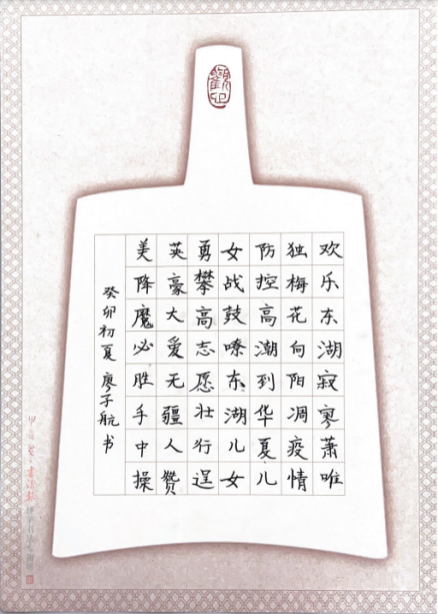 欢乐东湖寂寥萧唯
独梅花向阳凋疫情
防控高潮到华夏儿
女战鼓嘹东湖儿女
勇攀高志愿壮行逞
英豪大爱无疆人赞
美降魔必胜手中操
癸卯初夏廖子航书